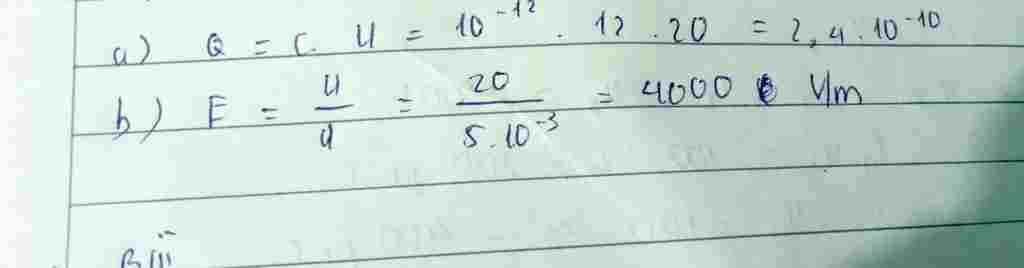 a) Q = C. U = 10⁻¹² . 12 . 20 = 2,4 . 10⁻¹⁰
b) E = U/d = 20/5.10⁻³ = 4000 V/m
Bài